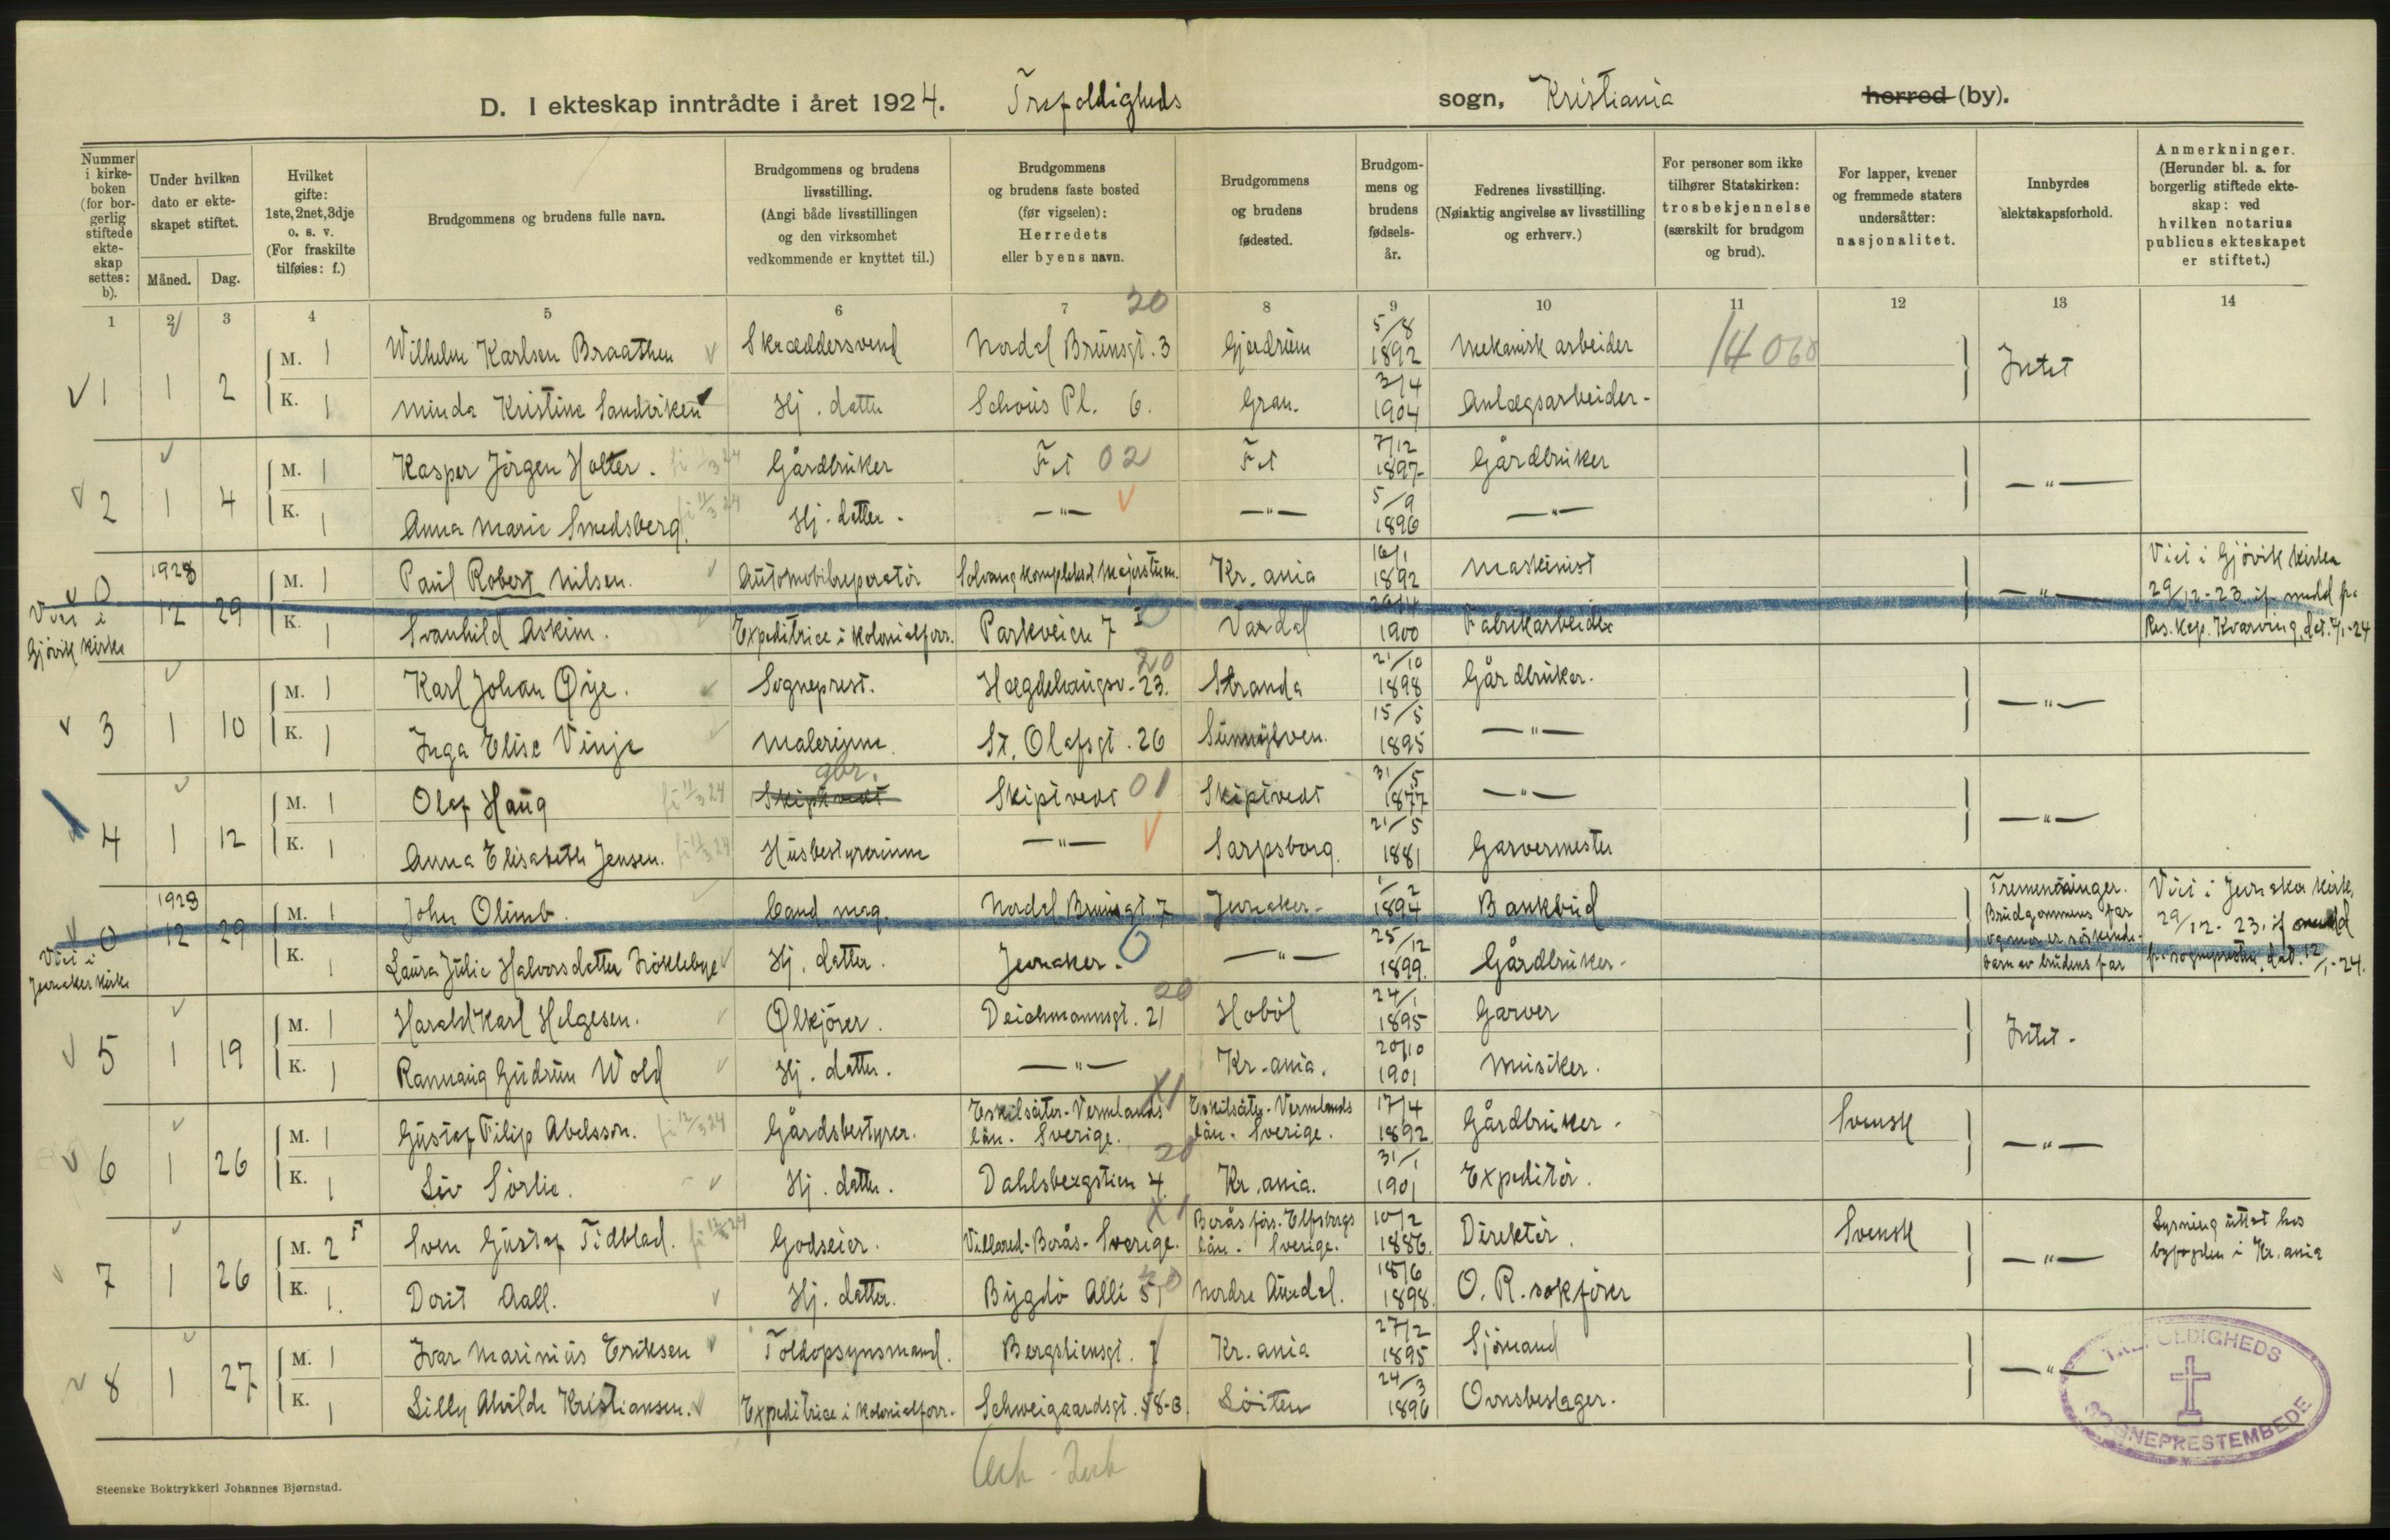 D. I ekteskap inntrådte i året 1924. Trefoldigheds sogn, Kristiania herred (by).
Nummer i kirkeboken (for borgerlig stiftede ekteskap settes: b).
Under hvilken dato er ekteskapet stiftet.
Måned. Dag.
Hvilket gifte: 1ste, 2net, 3dje o. s. v. (For fraskilte tilføies: f.)
Brudgommens og brudens fulle navn.
Brudgommens og brudens livsstilling. (Angi både livsstillingen og den virksomhet vedkommende er knyttet til.)
Brudgommens og brudens faste bosted (før vigselen): Herredets eller byens navn.
Brudgommens og brudens fødested.
Brudgommens og brudens fødselsår.
Fedrenes livsstilling. (Nøiaktig angivelse av livsstilling og erhverv.)
For personer som ikke tilhører Statskirken: trosbekjennelse (særskilt for brudgom og brud).
For lapper, kvener og fremmede staters undersåtter: nasjonalitet.
Innbyrdes slektskapsforhold.
Anmerkninger. (Herunder bl. a. for borgerlig stiftede ekteskap: ved hvilken notarius publicus ekteskapet er stiftet.)
1 2 3 4 5 6 7 8 9 10 11 12 13 14
20
1 1 2 M. 1 Wilhelm Karlsen Braathen Skræddersvend Nordal Brunsgt. 3 Gjerdrum 5/8 1892 Mekanisk arbeider 14060 Intet
K. 1 Minda Kristine Sandviken Hj. datter Schous Pl. 6. Gran. 3/4 1904 Anlægsarbeider -
2 1 4 M. 1 Kasper Jörgen Holter. Gårdbruker Fet 02 Fet 7/12 1897 Gårdbruker —"—
K. 1 Anna Marie Smedsberg. Hj. datter. —"— —"— 5/9 1896 —"—
0 1923 12 29 M. 1 Paul Robert Nilsen. Automobilreperatör Solvang kompleks Majorstuen. Kr.ania 16/1 1892 Maskinist —"— Viet i Gjövik kirke 29/12-23 if. medd fra Res. kap. Kvarving, dat. 4/1-24
Viet i Gjövik kirke
K. 1 Svanhild Askim. Expeditrice i kolonialforr. Parkveien 7 Vardal 1900 Fabrikarbeider
20
3 1 10 M. 1 Karl Johan Øye. Sogneprest. Hægdehaugsv. 23. Stranda 21/10 1898 Gårdbruker. —"—
K. 1 Inga Elise Vinje Malerinne St. Olafsgt. 26 Sunnylven. 15/5 1895 —"—
4 1 12 M. 1 Olaf Haug Skiptvedt gbr. Skiptvedt 01 Skiptvedt 31/5 1877 —"— —"—
K. 1 Anna Elisabeth Jensen. Husbestyrerinne —"— Sarpsborg. 21/5 1881 Garvermester
0 1923 12 29 M. 1 John Olimb. Cand mag. Nordal Brunsgt 7 Jevnaker - 1/2 1894 Bankbud Tremenninger. Brudgommens far og mor er söskende- barn av brudens far Viet i Jevnaker kirke 29/12-23. if medd fra sognepresten, dat. 12/1-24.
Viet i Jevnaker kirke
K. 1 Laura Julie Halvorsdatter Hröklebye Hj. datter. Jevnaker. 0 —"— 25/12 1899. Gårdbruker.
20
5 1 19 M. 1 Harald Karl Helgesen. Ølkjörer. Deichmannsgt. 21 Hoböl 24/1 1895 Garver Intet.
K. 1 Rannaug Gudrun Wold Hj. datter. —"— Kr.ania. 20/10 1901 Musiker.
X1
6 1 26 M. 1 Gustaf Filip Abelsson. 12/3 24 Gårdsbestyrer. Eskilsäter-Vermlands län. Sverige. Eskilsäter-Vermlands län. Sverige. 17/4 1892 Gårdbruker. Svensk —"—
20
K. 1 Liv Sörlie. Hj. datter. Dahlsbergstien 4. Kr.ania. 31/1 1901 Expeditör.
X1
7 1 26 M. 2 f Sven Gustaf Tidblad. 12/3 24 Godseier. Villared-Borås-Sverige. Borås förs. Elfsborgs län. Sverige. 10/2 1886. Direktör. Svensk —"— Lysning uttat hos byfogden i Kr.ania
K. 1. Dorit Aall. Hj. datter. Bygdö Allé 51 Nordre Aurdal. 18/6 1898. O. R. sakförer
8 1 27 M. 1 Ivar Marinius Eriksen Toldopsynsmand. Bergsliensgt. Kr.ania 27/2 1895 Sjömand —"—
K. 1 Lilly Alvilde Kristiansen. Expeditrice i kolonialforr. Schweigaardsgt. 58-B Löiten 24/3 1896 Ovnsbeslager.
TREFOLDIGHEDS SOGNEPRESTEMBEDE
Steenske Boktrykkeri Johannes Bjørnstad.